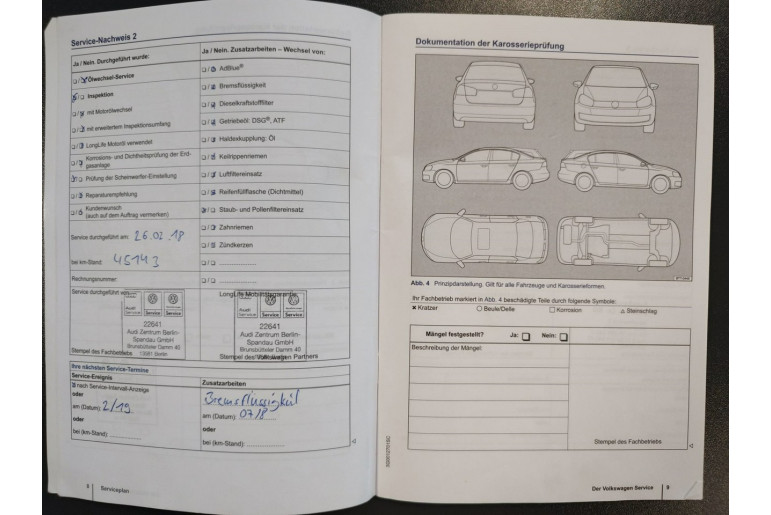 Service-Nachweis 2
Ja / Nein. Durchgeführt wurde:
Ölwechsel-Service
Inspektion
mit Motorölwechsel
mit erweitertem Inspektionsumfang
LongLife Motoröl verwendet
Korrosions- und Dichtheitsprüfung der Erd-
gasanlage
Prüfung der Scheinwerfer-Einstellung
Reparaturempfehlung
Kundenwunsch
(auch auf dem Auftrag vermerken)
Service durchgeführt am: 26.02.18
bei km-Stand: 45143
Rechnungsnummer:
Service durchgeführt von
Audi Service Service
22641
Audi Zentrum Berlin-
Spandau GmbH
Brunsbütteler Damm 40
13581 Berlin
Stempel des Fachbetriebs
Ja / Nein. Zusatzarbeiten – Wechsel von:
AdBlue®
Bremsflüssigkeit
Dieselkraftstofffilter
Getriebeöl: DSG®, ATF
Haldexkupplung: Öl
Keilrippenriemen
Luftfiltereinsatz
Reifenfüllflasche (Dichtmittel)
Staub- und Pollenfiltereinsatz
Zahnriemen
Zündkerzen
LongLife Mobilitätsgarantie
Service Service
22641
Audi Zentrum Berlin-
Spandau GmbH
Brunsbütteler Damm 40
Stempel des Volkswagen Partners
Ihre nächsten Service-Termine
Service-Ereignis
nach Service-Intervall-Anzeige
oder
am (Datum): 2/19
oder
bei (km-Stand):
Zusatzarbeiten
Bremsflüssigkeit
am (Datum): 07/18
oder
bei (km-Stand):
8 Serviceplan
Dokumentation der Karosserieprüfung
Abb. 4 Prinzipdarstellung. Gilt für alle Fahrzeuge und Karosserieformen.
Ihr Fachbetrieb markiert in Abb. 4 beschädigte Teile durch folgende Symbole:
× Kratzer ○ Beule/Delle □ Korrosion △ Steinschlag
Mängel festgestellt? Ja: □ Nein: □
Beschreibung der Mängel:
Stempel des Fachbetriebs
Der Volkswagen Service 9